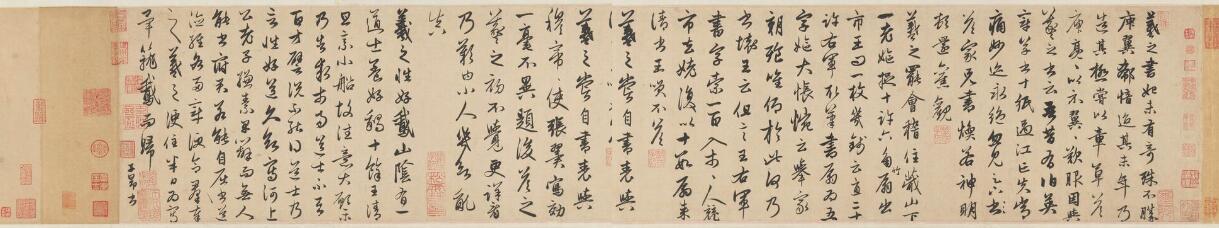 羲之書初未有奇殊不勝
庾翼郗愔迨其末年乃
造其極嘗以章草答
庾亮亮以示翼翼歎服因與
羲之書云吾昔有伯英
章草書十紙過江亡失常
痛妙迹永絕忽見足下書
答家兄書煥若神明
頓還舊觀
羲之罷會稽住蕺山下
一老嫗捉十許六角竹扇出
市王問一枚幾錢云直二十
許右軍取筆書扇扇為五
字嫗大悵惋云舉家
朝飡惟仰於此何乃
書壞王云但言王右軍
書字索一百入市人競
市去姥復以十數扇來
請書王笑不答
羲之嘗自書表與
羲之嘗自書表與
穆帝帝使張翼寫効
一毫不異題後答之
羲之初不覺更詳看
乃歎曰小人幾欲亂
真
羲之性好鵞山陰有一
道士養好鵞十餘王清
旦乘小船故往意大願樂
乃告求市易道士不與
百方譬說不能得道士乃
言性好道久欲寫河上
公老子縑素早辦而無人
能書府君若能自屈書道
德經各兩章便合羣以奉
之羲之便住半日為寫
畢籠鵞而歸
子昂書